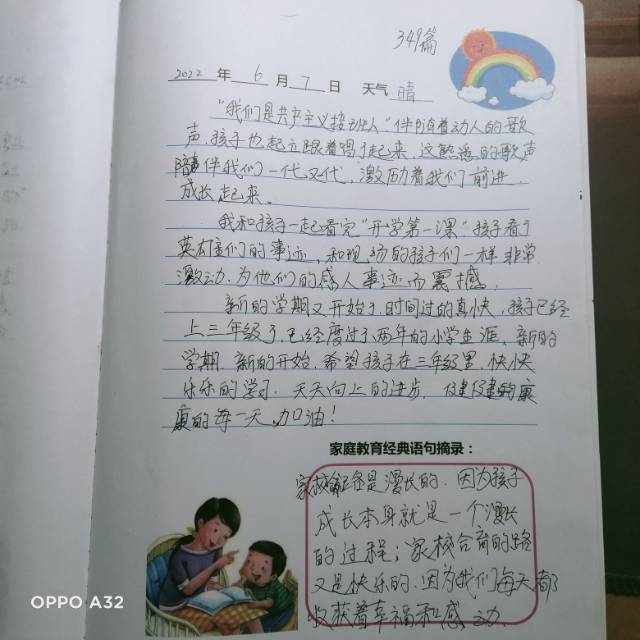 349篇
2022 年 6 月 7 日 天气 晴
"我们是共产主义接班人"伴随着动人的歌
声,孩子也起立跟着唱了起来,这熟悉的歌声
陪伴我们一代又代,激励着我们前进,
成长起来。
我和孩子一起看完"开学第一课"孩子看了
英雄们的事迹,和现场的孩子们一样非常
激动,为他们的感人事迹而震撼,
新的学期又开始了,时间过的真快,孩子已经
上三年级了,已经度过了两年的小学生涯、新的
学期、新的开始,希望孩子在三年级里,快快
乐乐的学习,天天向上的进步,健健的康
康的每一天,加油!
家庭教育经典语句摘录:
家校 是漫长的,因为孩子
成长本身就是一个漫长
的过程;家校合育的路
又是快乐的,因为我们每天都
收获着幸福和感动.
OPPO A32